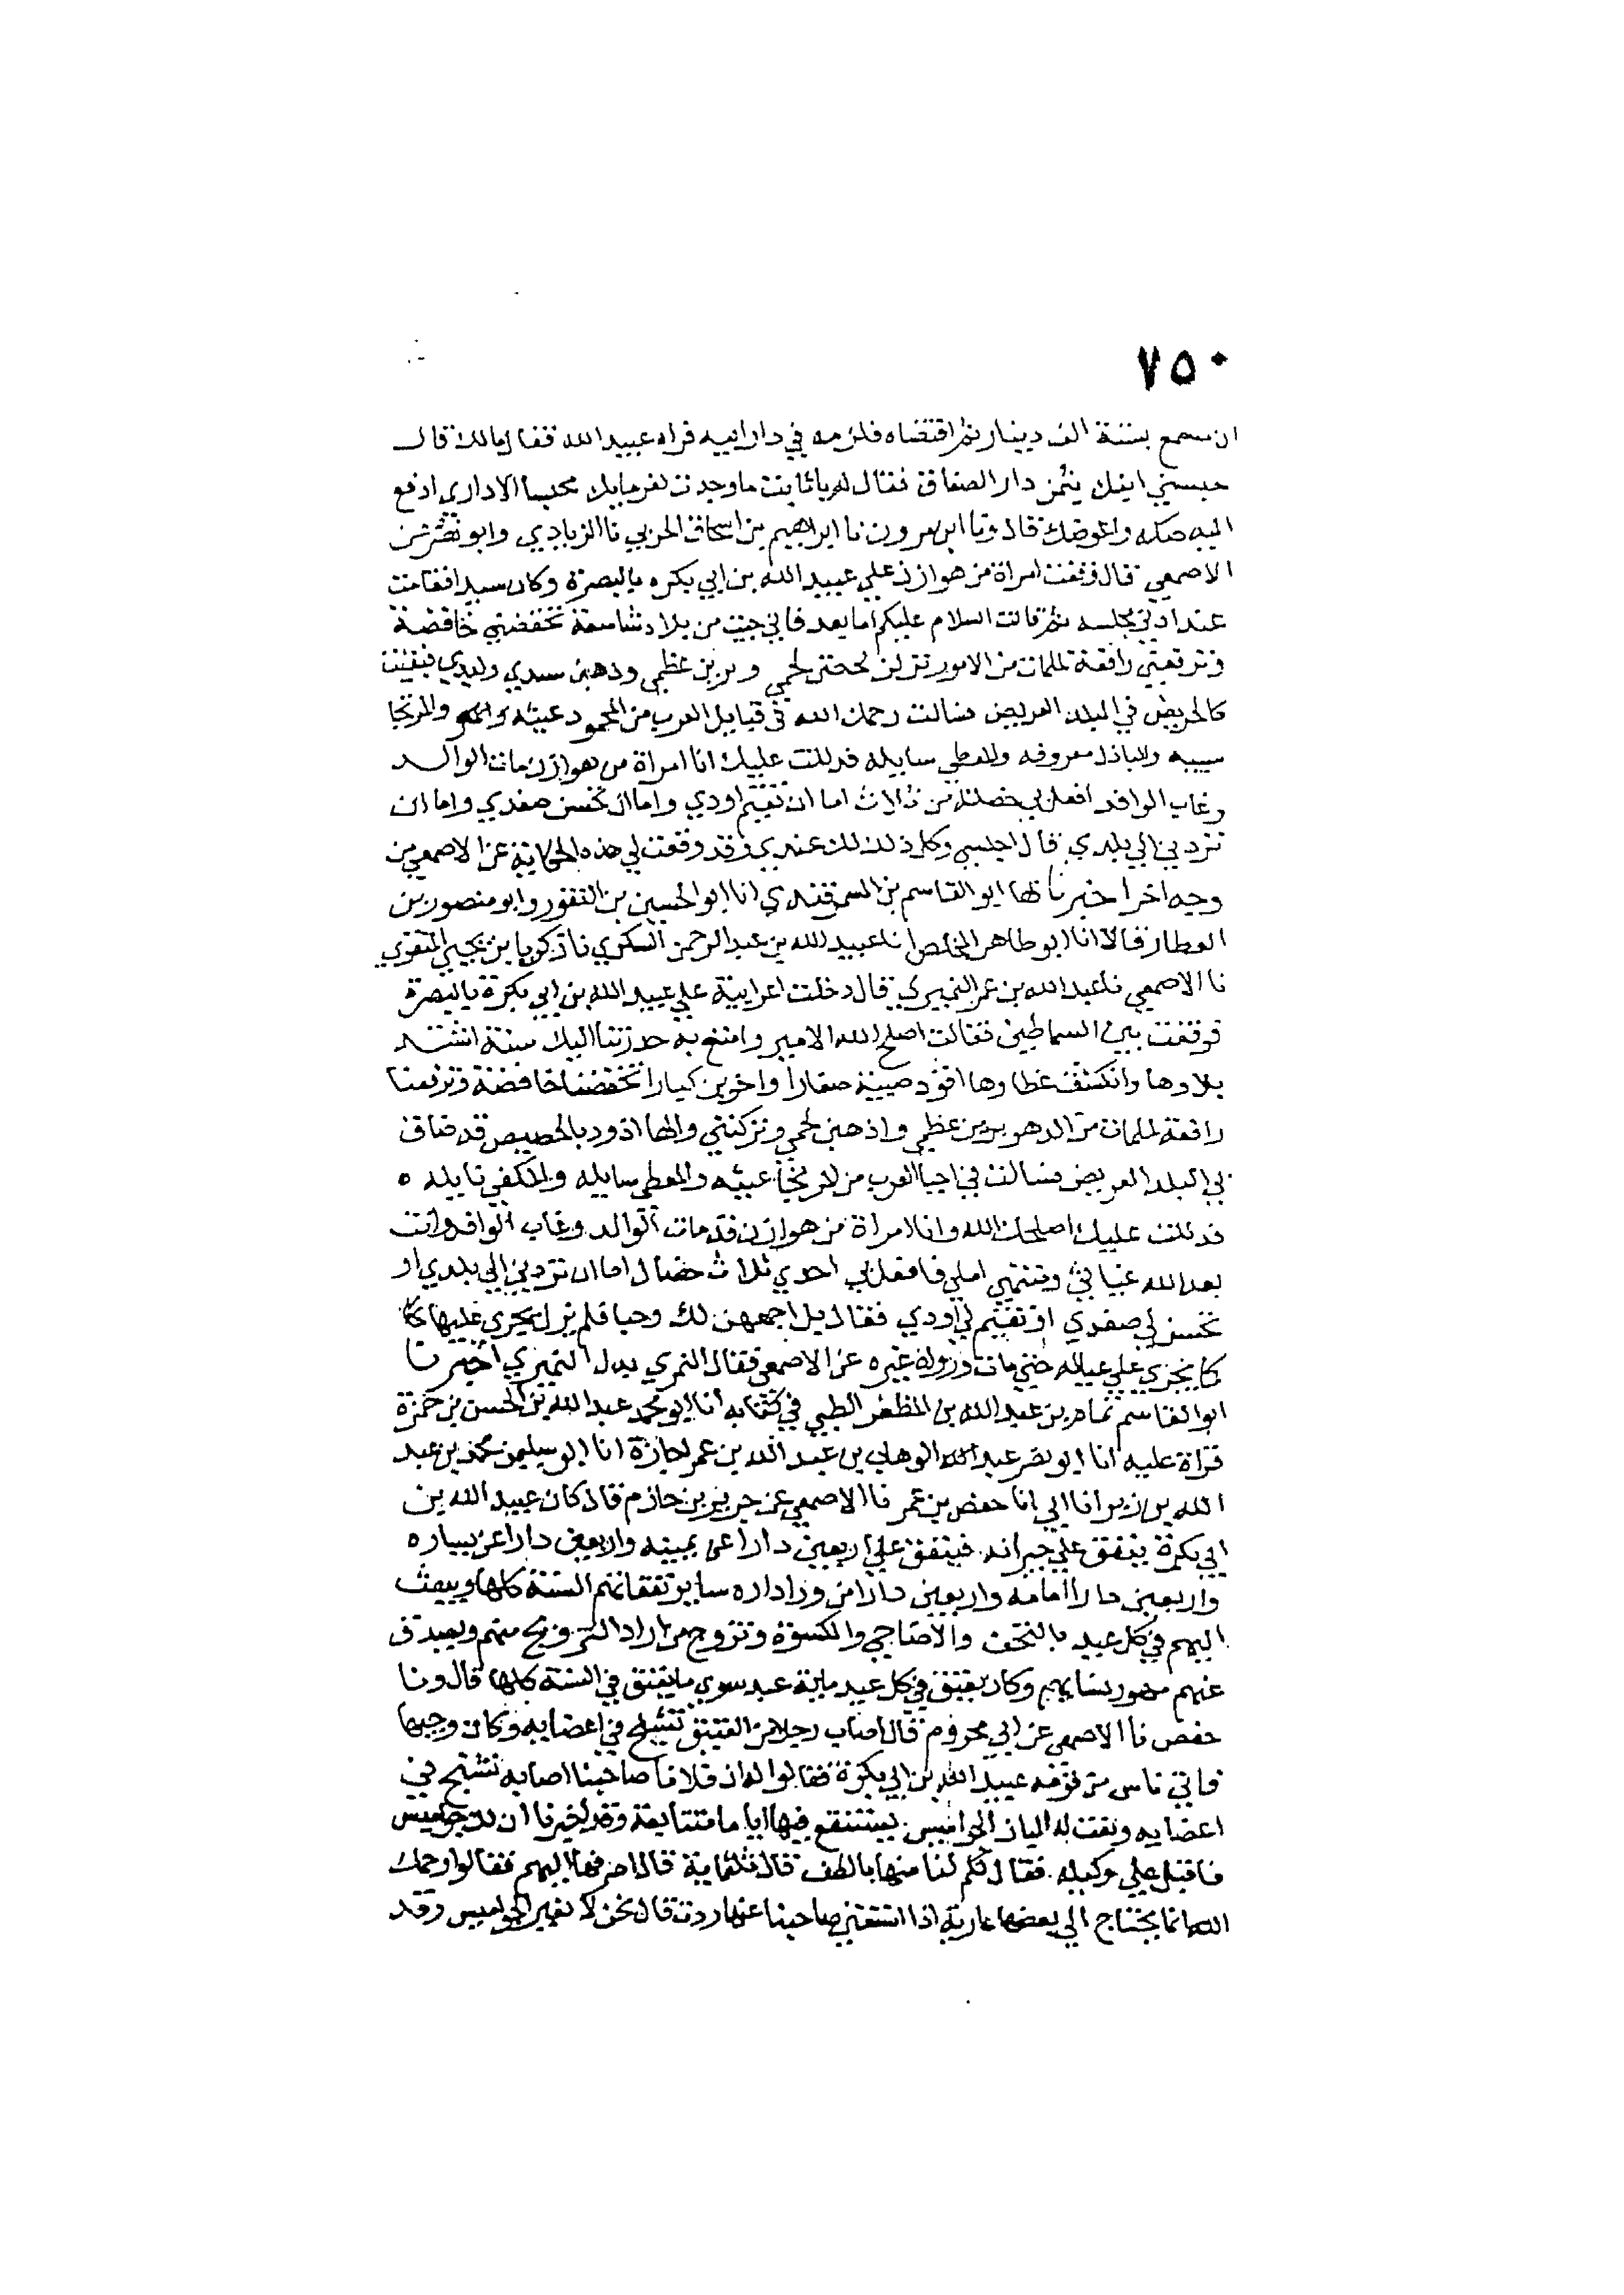 ٧٥٠
ان سمع بستة الف دينار ثم اقتضاه فلزمه في دار ابيه فراه عبيد الله فقال مالك قال
حبسني ابنك بثمن دار الصفاق فقال له يا ثابت ما وجدت لغرمايك محبسا الا داري ادفع
اليه صكه واعوضك قال ونا ابن مرون نا ابراهيم بن اسحاق الحربي نا الزيادي وابو نصر عن
الاصمعي قال وقفت امراة من هوازن علي عبيد الله بن ابي بكره بالبصرة وكان سيدا فقامت
عند ادني مجلسه ثم قالت السلام عليكم اما بعد فاني جيت من بلاد شاسعة تخفضني خافضة
وترفعني رافعة لملمات من الامور نزلن بي لحمي وبرين عظمي وذهبن سبدي ولبدي فبقيت
كالحريض في البلد العريض فسالت رحمك الله في قبايل العرب من المحمود غيثه والمرتجا
سيبه والباذل معروفه والمعطي سايله فدللت عليك انا امراة من هوازن مات الوالد
وغاب الوافد افعل بي خصلة من ثلاث اما ان تقيم اودي واما ان تحسن صفدي واما ان
تردني الي بلدي قال اجلسي وكل ذلك لك عندي وقد وقعت لي هذه الحكاية عن الاصمعي من
وجه اخر اخبرنا بها ابو القاسم بن السمرقندي انا ابو الحسين بن النقور وابو منصور بن
العطار قالا انا ابو طاهر المخلص انا عبيد الله بن عبد الرحمن السكري نا زكريا بن يحيي المنقري
نا الاصمعي نا عبد الله بن عمر النميري قال دخلت اعرابية علي عبيد الله بن ابي بكرة بالبصرة
فوقفت بين السماطين فقالت اصلح الله الامير وامتع به حدرتنا اليك سنة اشتد
بلاوها وانكشف غطاوها اقود صبية صغارا واخرين كبارا تخفضنا خافضة وترفعنا
رافعة لملمات من الدهر برين عظمي واذهبن لحمي وتركنني والها ادور بالحضيض قد ضاق
بي البلد العريض فسالت في احيا العرب من المرتجا غيثه والمعطي سايله والمكفي نايله ٥
فدللت عليك اصلحك الله وانا امراة من هوازن قد مات الوالد وغاب الوافد وانت
بعد الله غياثي ومنتهي املي فافعل بي احدي ثلاث خصال اما ان تردني الي بلدي او
تحسن لي صفدي او تقيم لي اودي فقال بل اجمعهن لك وحيا فلم يزل يجري عليها كما
كما يجري علي عياله حتي ماتت ورواه غيره عن الاصمعي فقال النمري بدل النميري اخبرنا
ابو القاسم تمام بن عبد الله بن المظفر الطبي في كتابه انا ابو محمد عبد الله بن الحسن بن حمزة
قراة عليه انا ابو نصر عبد الوهاب بن عبد الله بن عمر اجازة انا ابو سليمن محمد بن عبد
الله بن زبر انا ابي انا حفص بن عمر نا الاصمعي عن جرير بن حازم قال كان عبيد الله بن
ابي بكرة ينفق علي جيرانه فينفق علي اربعين دارا عن يمينه واربعين دارا عن يساره
واربعين دارا امامه واربعين دارا من ورا داره ساير نفقاتهم السنة كلها ويبعث
اليهم في كل عيد بالتحف والاضاحي والكسوة وتزوج من اراد التزويج منهم ويصدق
عنهم مهور نسايهم وكان يعتق في كل عيد ماية عبد سوي ما يعتق في السنة كلها قال ونا
حفص نا الاصمعي عن ابي محروم قال اصاب رجلا من العتيق تشبح في اعضايه وكان وجيها
فاتي ناس من قومه عبيد الله بن ابي بكرة فقالوا له ان فلانا صاحبنا اصابه تشبح في
اعضايه ونعت له البان الجواميس يستنقع فيها اياما متتابعة وقد اخبرنا ان لك جواميس
فاقبل علي وكيله فقال كم لنا منها بالطف قال ثلثماية قال اصرفها اليهم فقالوا رحمك
الله انما يحتاج الي بعضها عارية اذا استغني صاحبنا عنها ردت قال نحن لا نعير الجواميس وقد